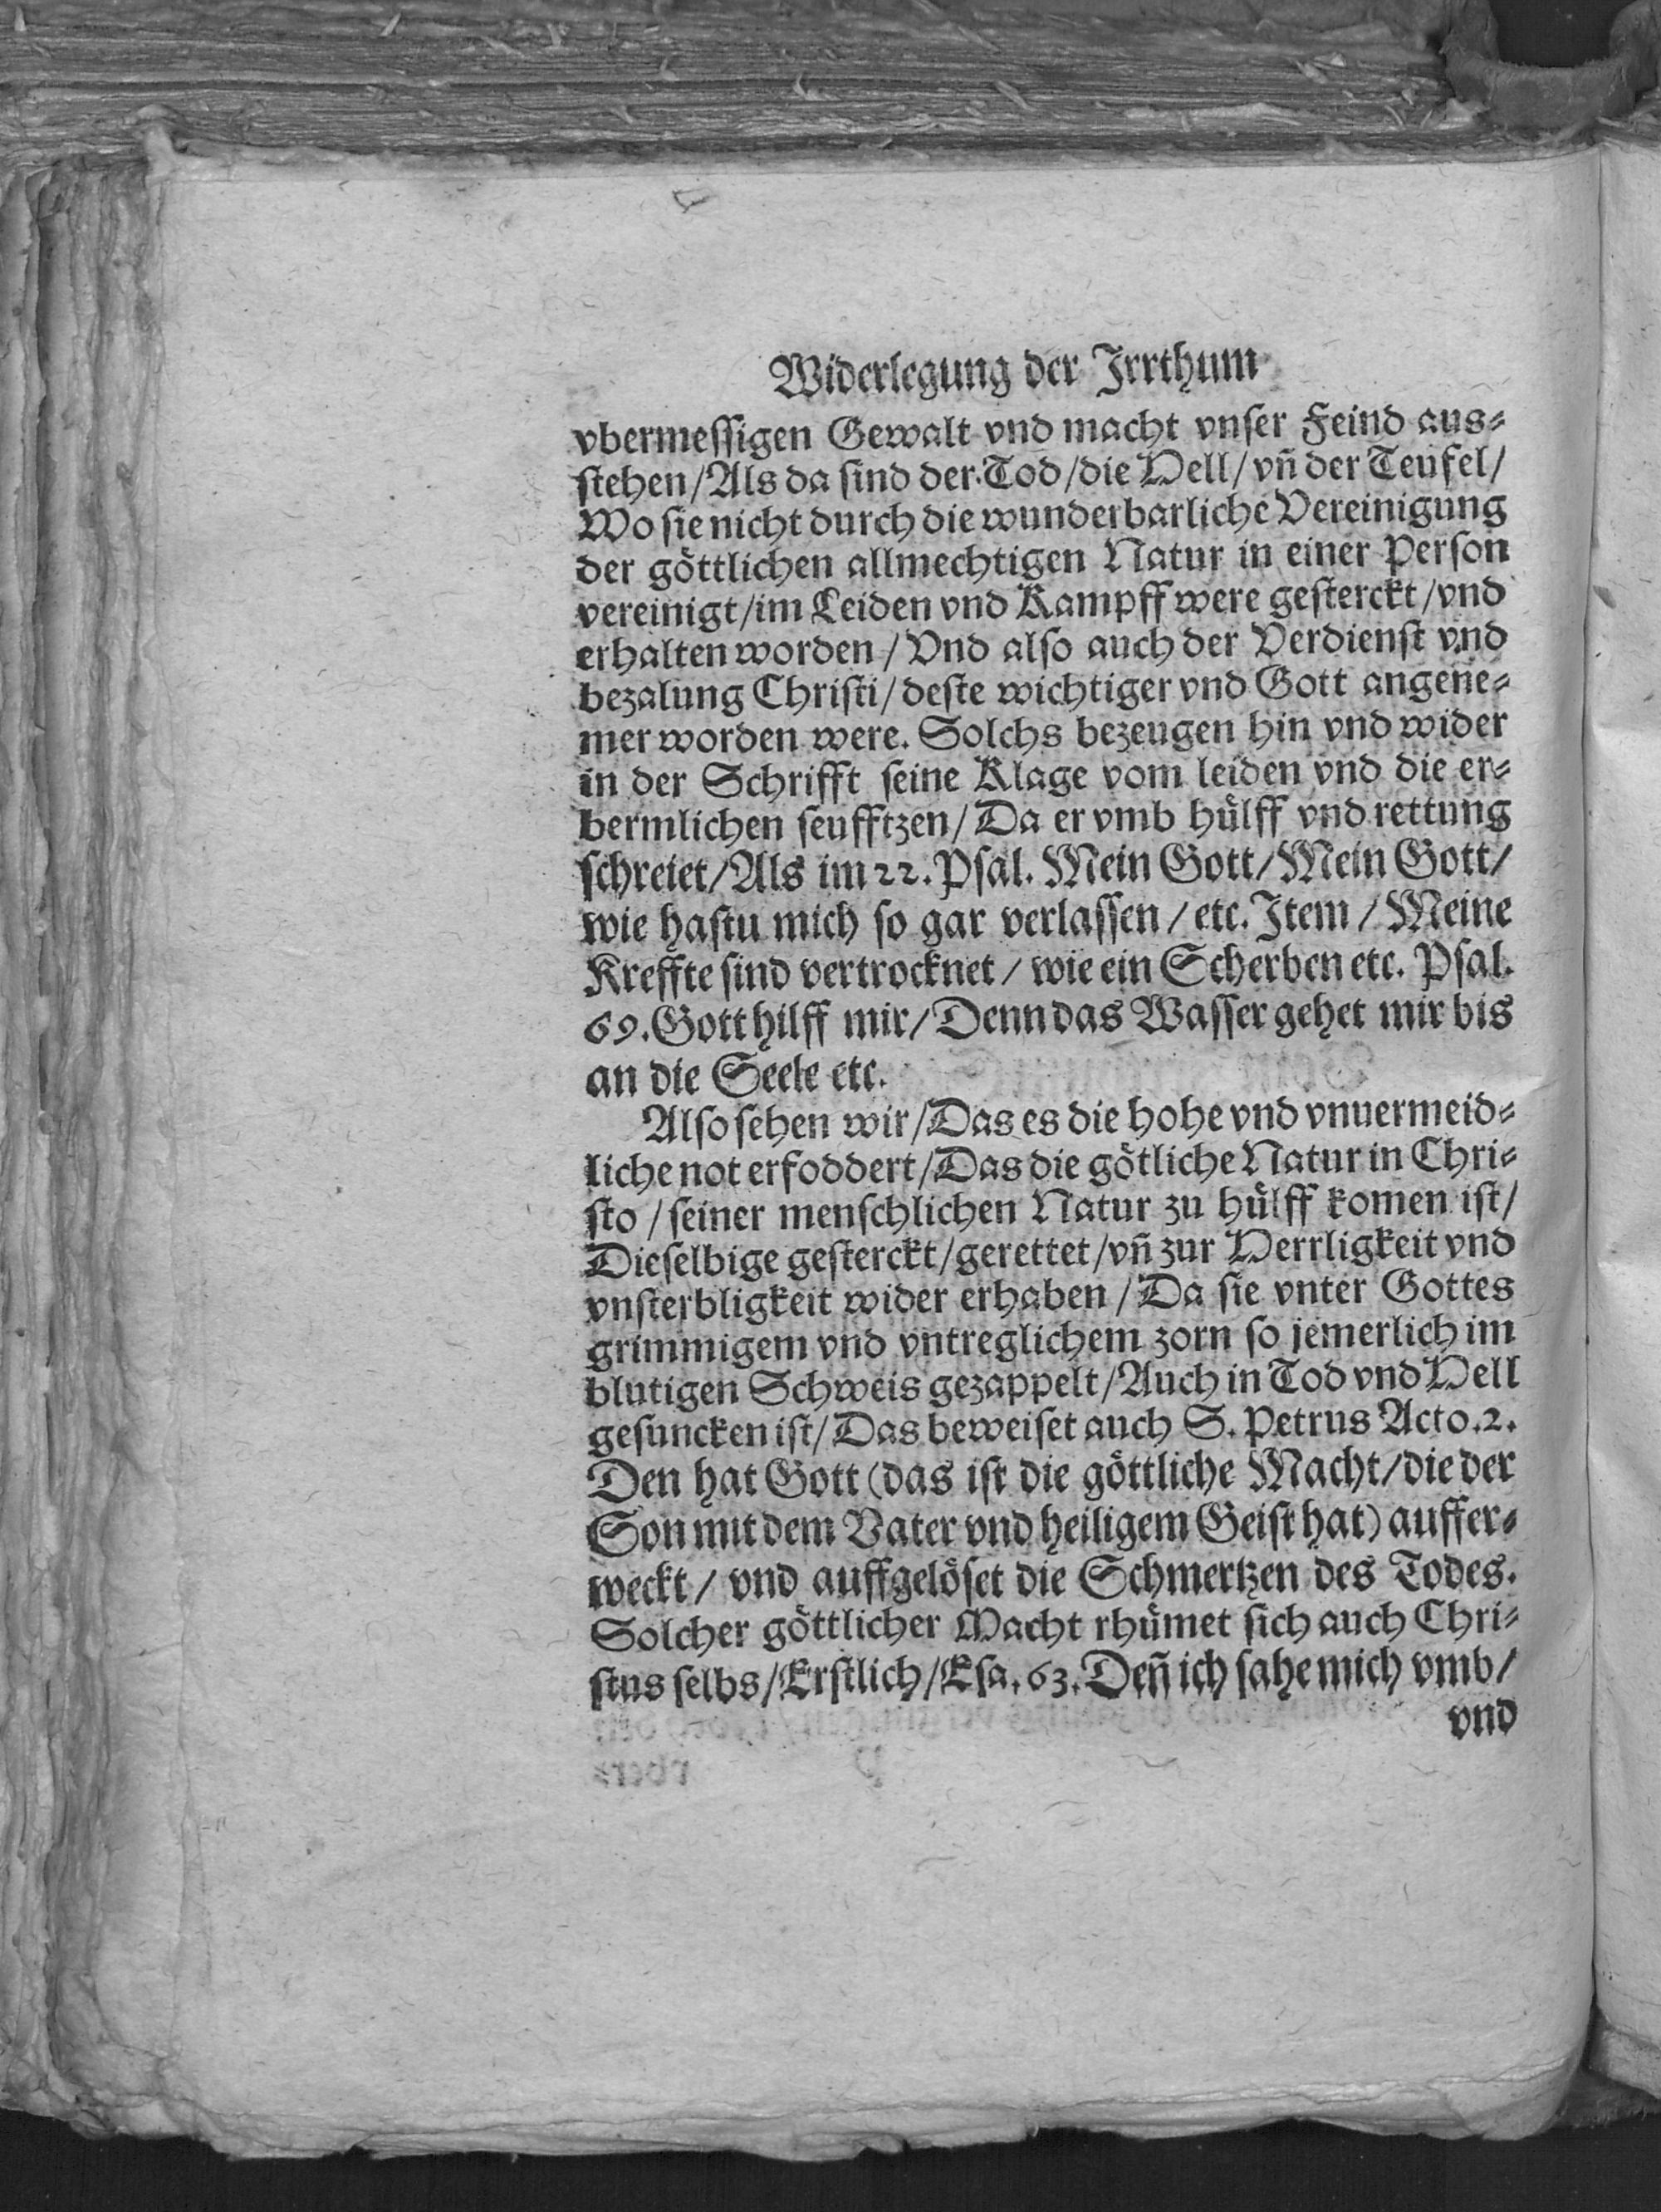 Widerlegung der Irrthum
vbermessigen Gewalt vnd macht vnser Feind aus=
stehen/Als da sind der Tod/die Hell/vn̄ der Teufel/
Wo sie nicht durch die wunderbarliche Vereinigung
der göttlichen allmechtigen Natur in einer Person
vereinigt/im Leiden vnd Kampff were gesterckt/vnd
erhalten worden/Vnd also auch der Verdienst vnd
bezalung Christi/deste wichtiger vnd Gott angene=
mer worden were. Solchs bezeugen hin vnd wider
in der Schrifft seine Klage vom leiden vnd die er=
bermlichen seufftzen/Da er vmb hülff vnd rettung
schreiet/Als im 22. Psal. Mein Gott/Mein Gott/
wie hastu mich so gar verlassen/etc. Item/Meine
Kreffte sind vertrocknet/wie ein Scherben etc. Psal.
69. Gott hilff mir/Denn das Wasser gehet mir bis
an die Seele etc.
Also sehen wir/Das es die hohe vnd vnuermeid=
liche not erfoddert/Das die götliche Natur in Chri=
sto/seiner menschlichen Natur zu hülff komen ist/
Dieselbige gesterckt/gerettet/vn̄ zur Herrligkeit vnd
vnsterbligkeit wider erhaben/Da sie vnter Gottes
grimmigem vnd vntreglichem zorn so jemerlich im
blutigen Schweis gezappelt/Auch in Tod vnd Hell
gesuncken ist/Das beweiset auch S. Petrus Acto. 2.
Den hat Gott (das ist die göttliche Macht/die der
Son mit dem Vater vnd heiligem Geist hat) auffer=
weckt/vnd auffgelöset die Schmertzen des Todes.
Solcher göttlicher Macht rhümet sich auch Chri=
stus selbs/Erstlich/Esa. 63. Den̄ ich sahe mich vmb/
vnd